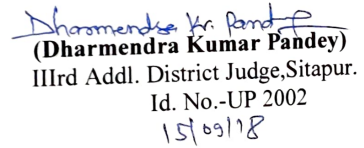 Dharmendra Kr. Pandey
(Dharmendra Kumar Pandey)
IIIrd Addl. District Judge,Sitapur.
Id. No.-UP 2002
15/09/18